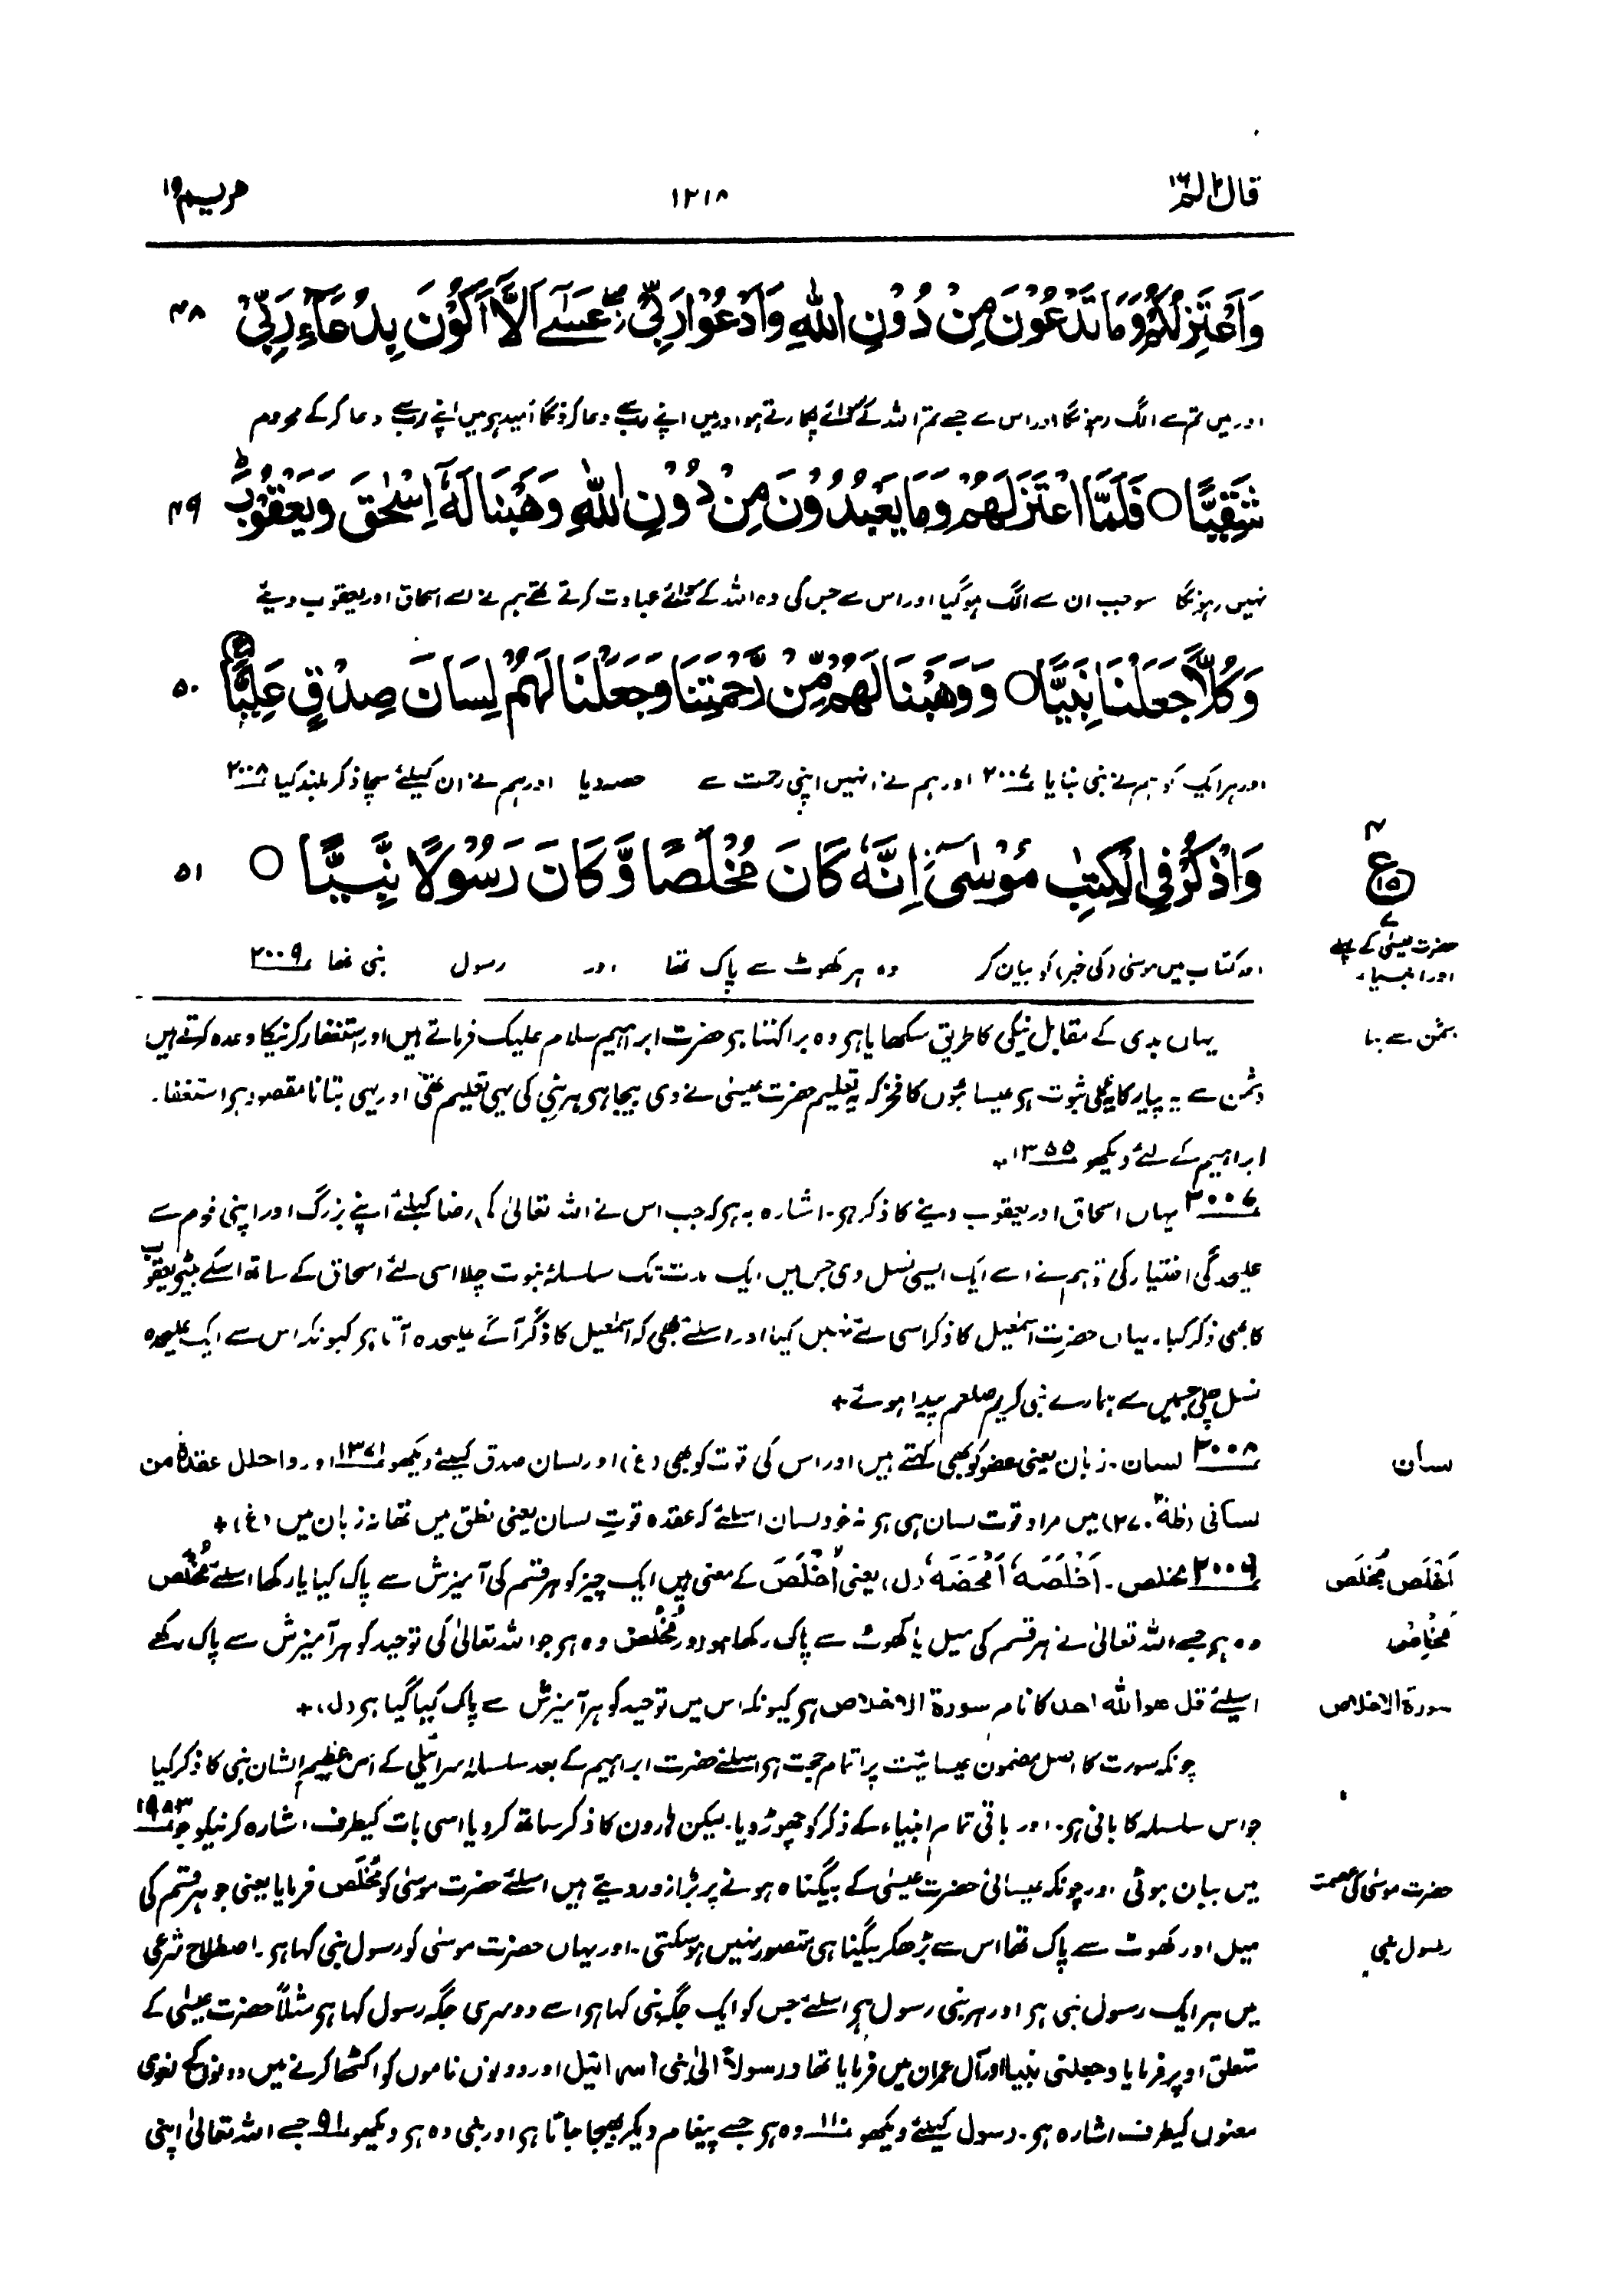 قال الم ۱۶
۱۲۱۸
مریم ۱۹
وَاَعْتَزِلُكُمْ وَمَا تَدْعُوْنَ مِنْ دُوْنِ اللّٰهِ وَاَدْعُوْا رَبِّیْ ۖ عَسٰۤى اَلَّاۤ اَكُوْنَ بِدُعَآءِ رَبِّیْ ۴۸
اور میں تم سے الگ رہونگا اور اس سے جسے تم اللہ کے سوائے پکارتے ہو اور میں اپنے رب سے دعا کرونگا امید ہو میں اپنے رب سے دعا کرکے محروم
شَقِیًّا ○ فَلَمَّا اعْتَزَلَهُمْ وَمَا یَعْبُدُوْنَ مِنْ دُوْنِ اللّٰهِ وَهَبْنَا لَهٗۤ اِسْحٰقَ وَیَعْقُوْبَ ؕ ۴۹
نہیں رہونگا سو جب ان سے الگ ہوگیا اور اس سے جس کی وہ اللہ کے سوائے عبادت کرتے تھے ہم نے اسے اسحاق اور یعقوب دیئے
وَكُلًّا جَعَلْنَا نَبِیًّا ○ وَوَهَبْنَا لَهُمْ مِّنْ رَّحْمَتِنَا وَجَعَلْنَا لَهُمْ لِسَانَ صِدْقٍ عَلِیًّا ۵۰
اور ہر ایک کو ہم نے نبی بنایا ۲۰۰۷ اور ہم نے انہیں اپنی رحمت سے حصہ دیا اور ہم نے ان کیلئے سچا ذکر بلند کیا ۲۰۰۸
وَاذْكُرْ فِی الْكِتٰبِ مُوْسٰۤى اِنَّهٗ كَانَ مُخْلَصًا وَّكَانَ رَسُوْلًا نَّبِیًّا ○ ۵۱
ع ۱۵
حضرت عیسیٰ کے پہلے
اور انبیاء
اور کتاب میں موسیٰ (کی خبر) کو بیان کر وہ ہر کھوٹ سے پاک تھا اور رسول نبی تھا ۲۰۰۹
یہاں بدی کے مقابل نیکی کا طریق سکھایا ہو وہ برا کہتا ہو حضرت ابراہیم سلام علیک فرماتے ہیں اور استغفار کرنیکا وعدہ کرتے ہیں
دشمن سے یہ پیار کا عملی ثبوت ہو عیسائیوں کا فخر کہ یہ تعلیم حضرت عیسیٰ نے دی بیجا ہو ہر نبی کی یہی تعلیم تھی اور یہی بتانا مقصود ہو استغفار
ابراہیم کے لئے دیکھو ۱۳۵۵
۲۰۰۷ یہاں اسحاق اور یعقوب دینے کا ذکر ہو۔ اشارہ یہ ہو کہ جب اس نے اللہ تعالیٰ کی رضا کیلئے اپنے بزرگ اور اپنی قوم سے
علیحدگی اختیار کی تو ہم نے اسے ایک ایسی نسل دی جس میں ایک مدت تک سلسلۂ نبوت چلا اسی لئے اسحاق کے ساتھ اسکے بیٹے یعقوب
کا بھی ذکر کیا۔ یہاں حضرت اسمٰعیل کا ذکر اسی لئے نہیں کیا اور اسلئے بھی کہ اسمٰعیل کا ذکر آگے علیحدہ آتا ہو کیونکہ اس سے ایک علیحدہ
نسل چلی جس میں سے ہمارے نبی کریم صلعم پیدا ہوئے +
لسان
۲۰۰۸ لسان۔ زبان یعنی عضو کو بھی کہتے ہیں اور اس کی قوت کو بھی (غ) اور لسان صدق کیلئے دیکھو ۱۳۷۱ اور واحلل عقدة من
لسانی (طٰهٰ ۲۷) میں مراد قوت لسان ہی ہو نہ خود لسان اسلئے کہ عقدہ قوتِ لسان یعنی نطق میں تھا نہ زبان میں (غ) +
اَخْلَصَ مُخْلَص
۲۰۰۹ مخلص۔ اَخْلَصَهٗ اَمْحَضَهٗ (ل) یعنی اَخْلَصَ کے معنی ہیں ایک چیز کو ہر قسم کی آمیزش سے پاک کیا یا رکھا اسلئے مُخْلَص
مُخْلِص
وہ ہو جسے اللہ تعالیٰ نے ہر قسم کی میل یا کھوٹ سے پاک رکھا ہو اور مُخْلِص وہ ہو جو اللہ تعالیٰ کی توحید کو ہر آمیزش سے پاک رکھے
سورۃ الاخلاص
اسلئے قل هو الله احد کا نام سورة الاخلاص ہو کیونکہ اس میں توحید کو ہر آمیزش سے پاک کیا گیا ہو (ل) +
چونکہ سورت کا اصل مضمون عیسائیت پر اتمام حجت ہو اسلئے حضرت ابراہیم کے بعد سلسلہ اسرائیلی کے اس عظیم الشان نبی کا ذکر کیا
جو اس سلسلہ کا بانی ہو۔ اور باقی تمام انبیاء کے ذکر کو چھوڑ دیا۔ لیکن ہارون کا ذکر ساتھ کردیا اسی بات کیطرف اشارہ کرنیکو جو ۱۹۸۳
حضرت موسیٰ کی عصمت
میں بیان ہوئی اور چونکہ عیسائی حضرت عیسیٰ کے بیگناہ ہونے پر بڑا زور دیتے ہیں اسلئے حضرت موسیٰ کو مُخْلَص فرمایا یعنی جو ہر قسم کی
رسول نبی
میل اور کھوٹ سے پاک تھا اس سے بڑھکر بیگناہی متصور نہیں ہوسکتی۔ اور یہاں حضرت موسیٰ کو رسول نبی کہا ہو۔ اصطلاح شرعی
میں ہر ایک رسول نبی ہو اور ہر نبی رسول ہو اسلئے جس کو ایک جگہ نبی کہا ہو اسے دوسری جگہ رسول کہا ہو مثلاً حضرت عیسیٰ کے
متعلق اوپر فرمایا وجعلنی نبیا اور آل عمران میں فرمایا تھا ورسولاً الیٰ بنی اسرائیل اور دونوں ناموں کو اکٹھا کرنے میں دونوں کے لغوی
معنوں کیطرف اشارہ ہو۔ رسول کیلئے دیکھو ۱۱۰ وہ ہو جسے پیغام دیکر بھیجا جاتا ہو اور نبی وہ ہو دیکھو ۹۱ جسے اللہ تعالیٰ اپنی